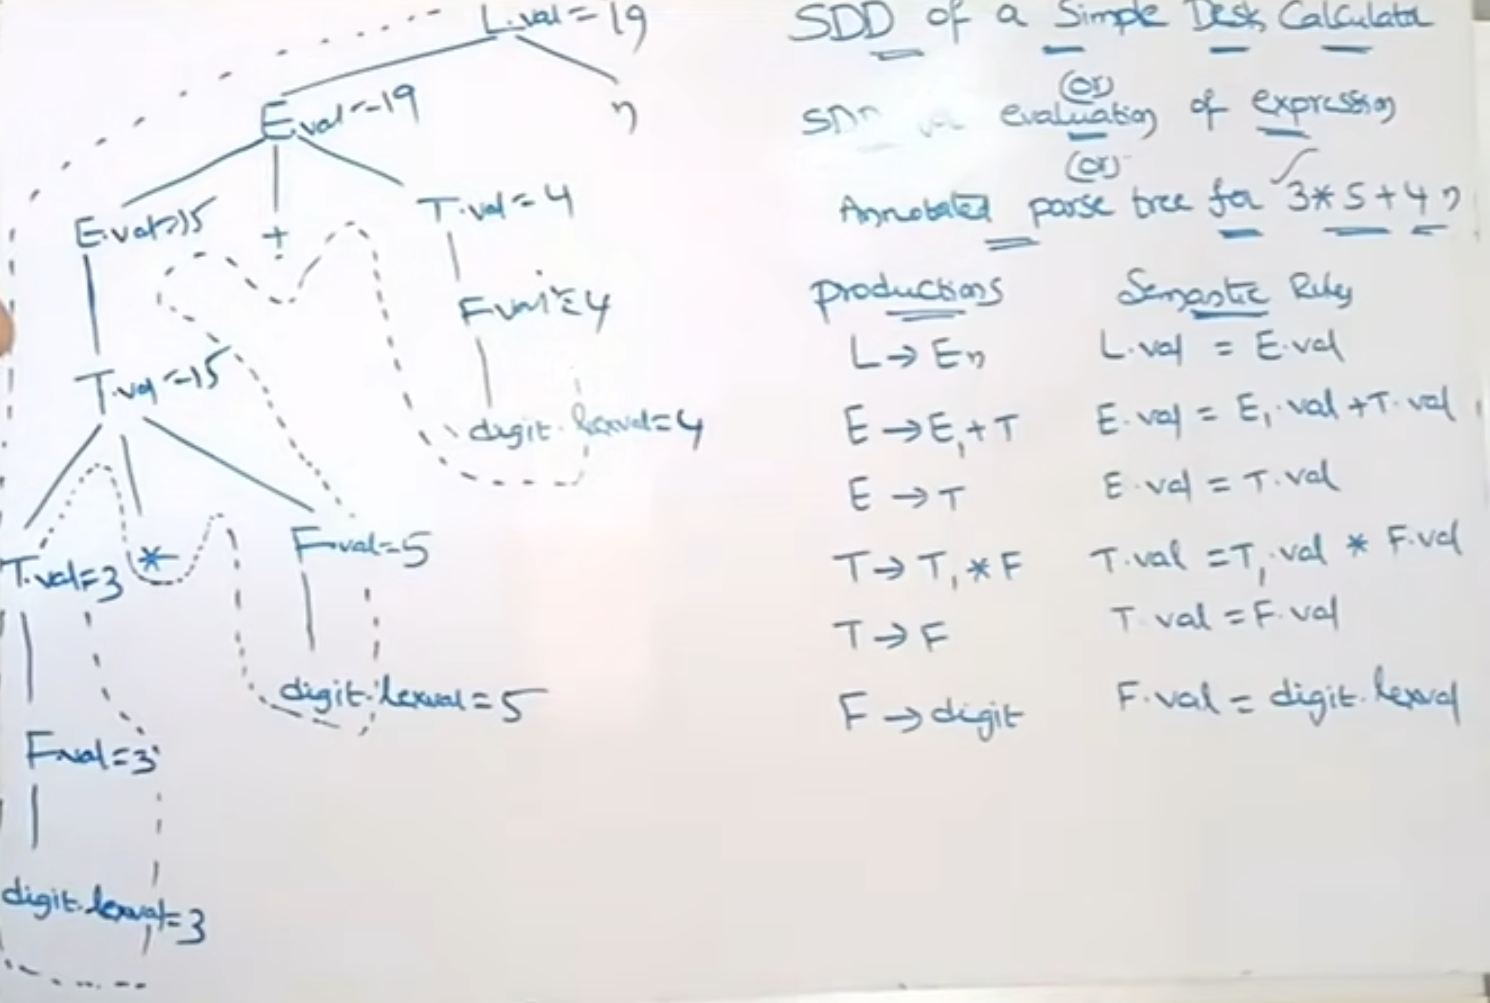 L.val = 19
E.val = 19
n
E.val = 15
+
T.val = 4
F.val = 4
digit.lexval = 4
T.val = 15
T.val = 3
*
F.val = 5
digit.lexval = 5
F.val = 3
digit.lexval = 3
SDD of a Simple Desk Calculator
(or)
SDD evaluation of expression
(or)
Annotated parse tree for 3*5+4n
productions Semantic Rules
L → En L.val = E.val
E → E₁+T E.val = E₁.val + T.val
E → T E.val = T.val
T → T₁*F T.val = T₁.val * F.val
T → F T.val = F.val
F → digit F.val = digit.lexval